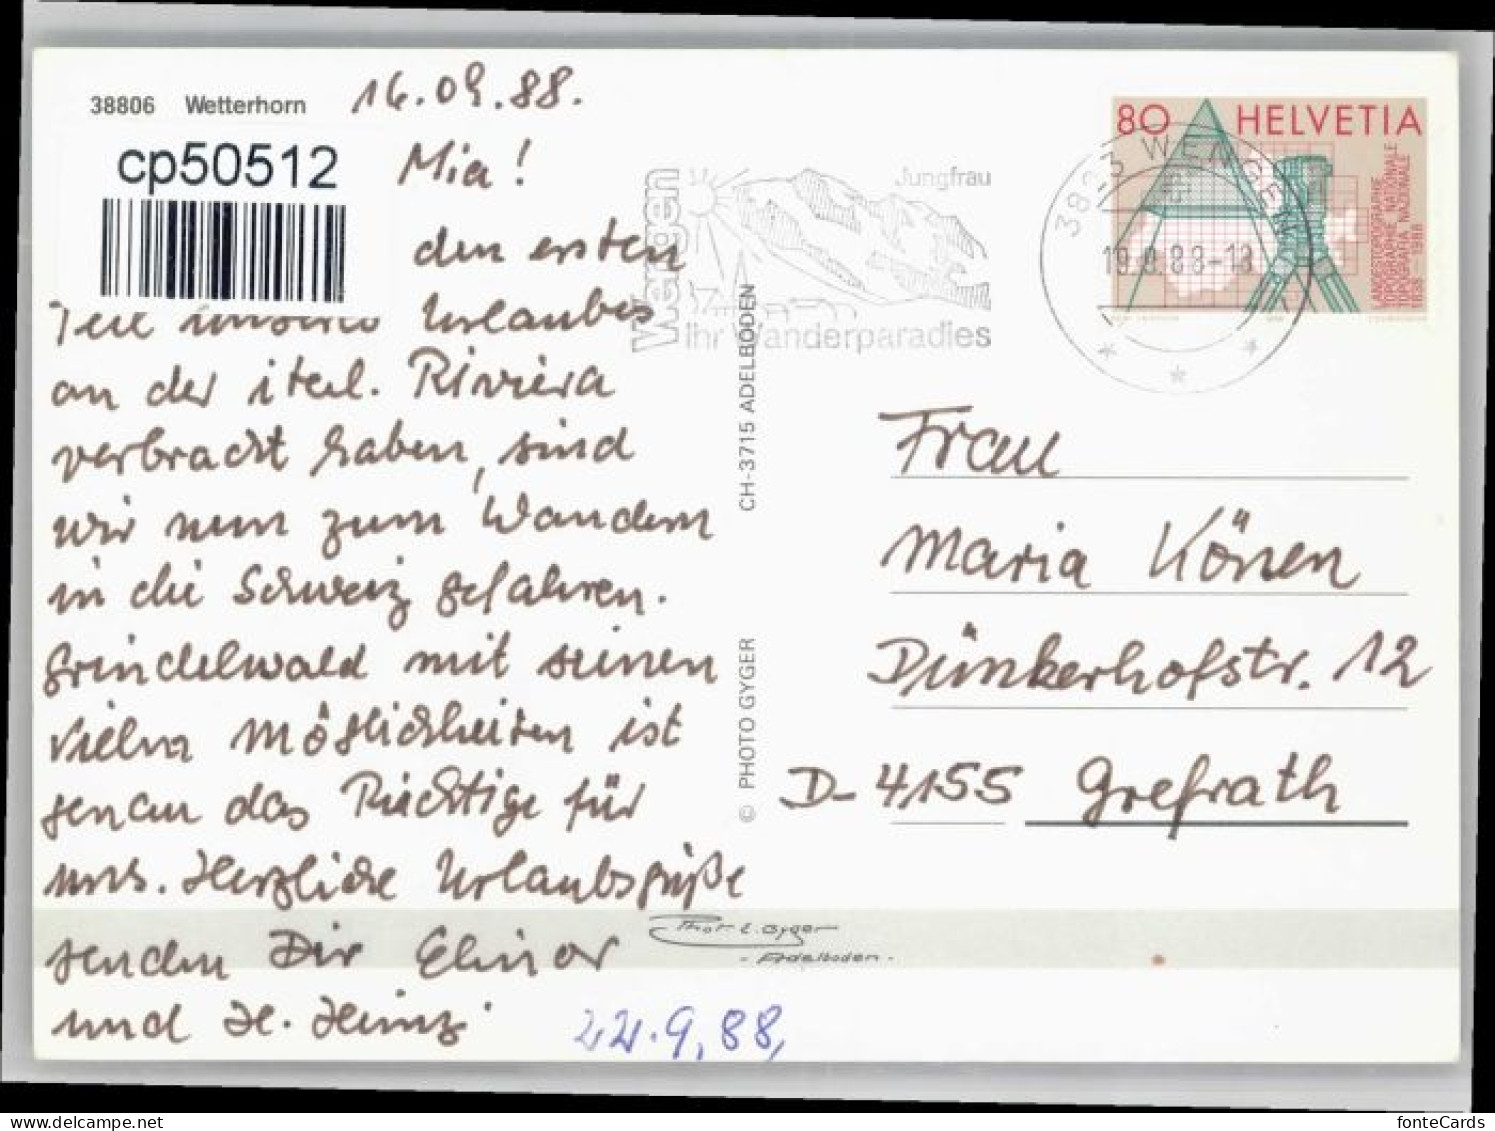 38806 Wetterhorn
16.09.88.
cp50512
Mia!
den ersten
Teil unseres Urlaubes
an der ital. Riviera
verbracht haben, sind
wir nun zum Wandern
in die Schweiz gefahren.
Grindelwald mit seinen
vielen Möglichkeiten ist
genau das Richtige für
uns. Herzliche Urlaubsgrüße
senden Dir Elinor
und H. Heinz
22.9.88,
Wengen
Jungfrau
Ihr Wanderparadies
3823 WENGEN
19.9.88-18
80 HELVETIA
LANDESTOPOGRAPHIE
TOPOGRAPHIE NATIONALE
TOPOGRAFIA NAZIONALE
1838 – 1988
CH-3715 ADELBODEN
© PHOTO GYGER
Frau
Maria Könen
Dünkerhofstr. 12
D-4155 Grefrath
Phot. E. Gyger
- Adelboden -
www.delcampe.net
fonteCards